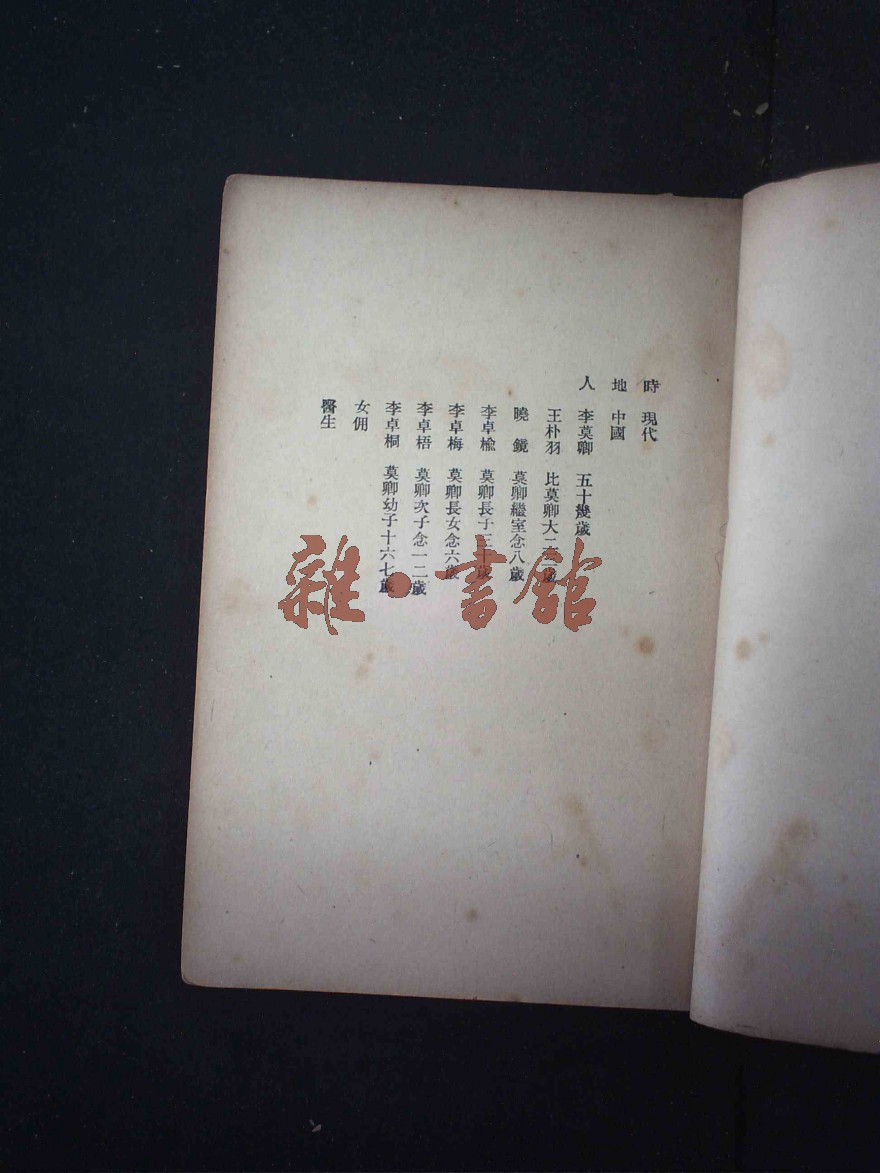 時 現代
地 中國
人 李莫卿 五十幾歲
王朴羽 比莫卿大二三歲
曉鏡 莫卿繼室念八歲
李卓楡 莫卿長子三十歲
李卓梅 莫卿長女念六歲
李卓梧 莫卿次子念一二歲
李卓桐 莫卿幼子十六七歲
女佣
醫生
雜·書館